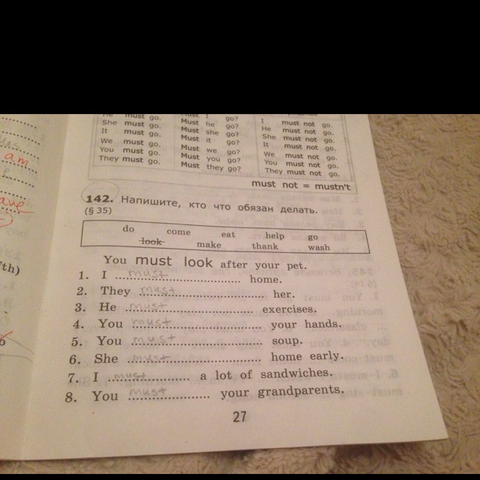 He must go. Must I go? I must not go.
She must go. Must he go? He must not go.
It must go. Must she go? She must not go.
Must it go? It must not go.
We must go. Must we go? We must not go.
You must go. Must you go? You must not go.
They must go. Must they go? They must not go.
must not = mustn't
142. Напишите, кто что обязан делать.
(§ 35)
do come eat help go
look make thank wash
You must look after your pet.
1. I must home.
2. They must her.
3. He must exercises.
4. You must your hands.
5. You must soup.
6. She must home early.
7. I must a lot of sandwiches.
8. You must your grandparents.
27
am
7th)